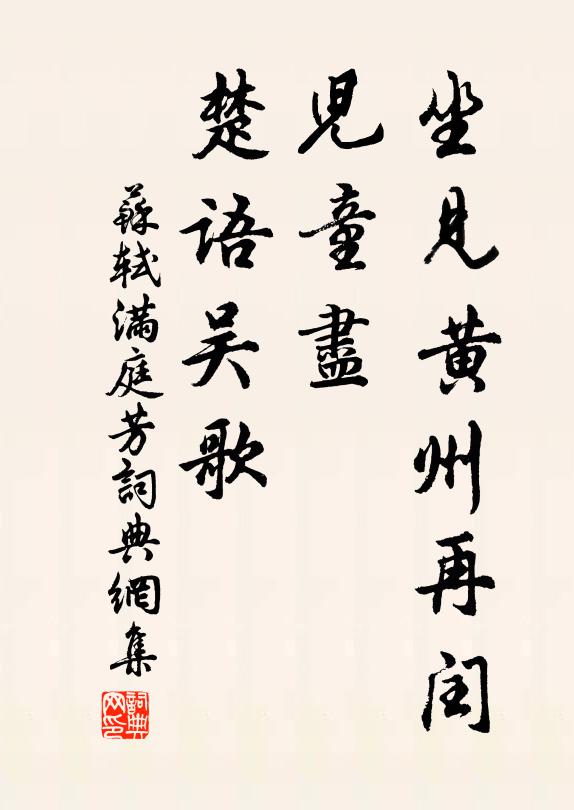 坐見黄州再闰
兒童盡
楚語吴歌
蘇軾滿庭芳詞典網集
詞典网印